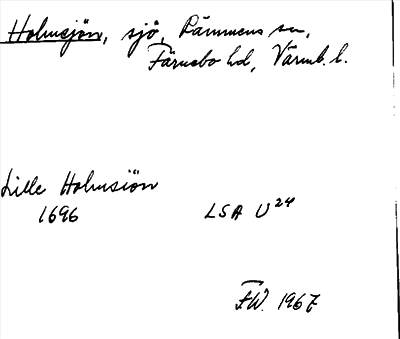 Holmsjön, sjö, Rämmens sn,
Färnebo hd, Värml. l.
Lille Holmsiön
1696 LSA U24
F.W. 1967